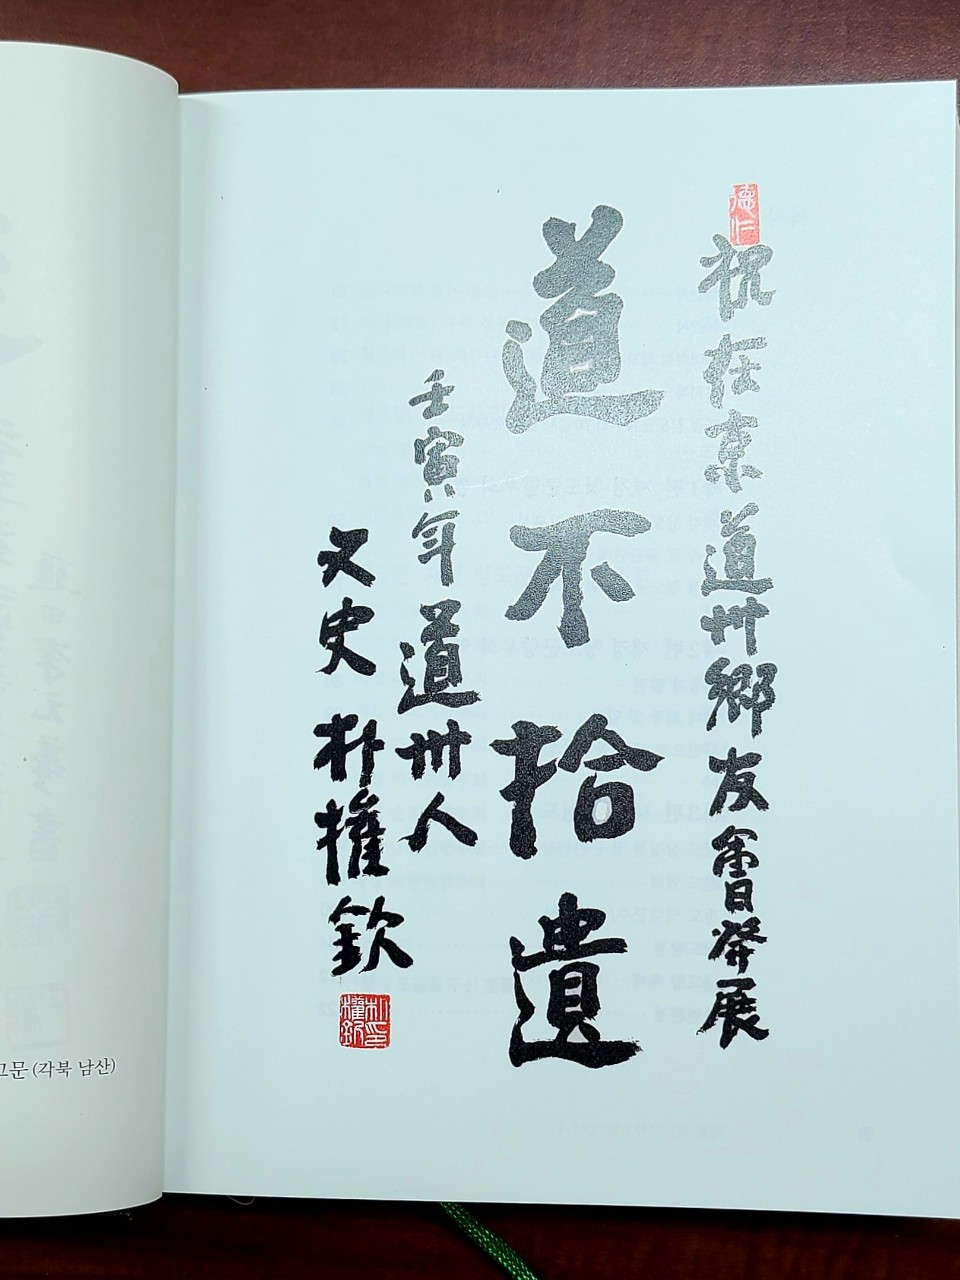 德仁
祝在京道州鄕友會發展
道不拾遺
壬寅年 道州人
又史 朴權欽
朴印權欽
문 (각북 남산)